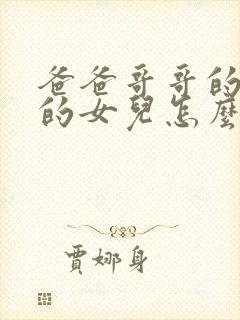 爸爸哥哥的
的女兒怎麼
賈娜身